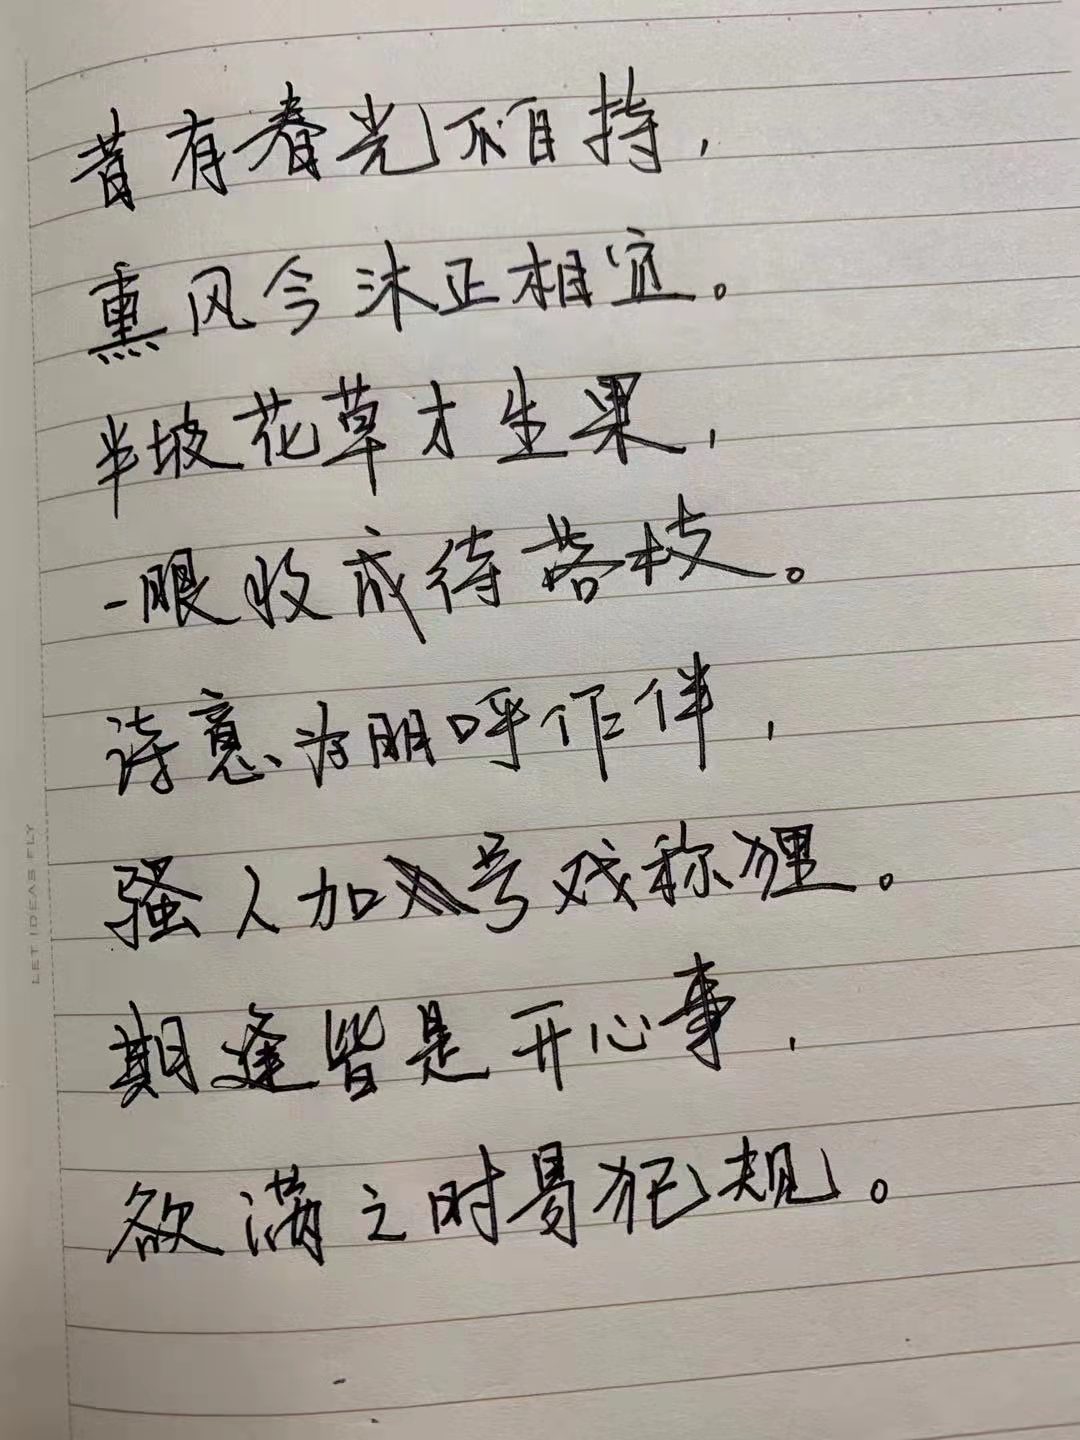 昔有春光不自持，
熏风今沐正相宜。
半坡花草才生果，
一眼收成待落枝。
诗意为朋呼作伴，
骚人加号戏称狸。
期逢皆是开心事，
欲满之时易犯规。
LET IDEAS FLY